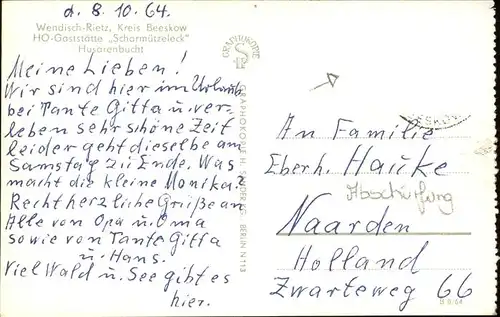 d. 8.10.64.
Wendisch-Rietz, Kreis Beeskow
HO-Gaststätte „Scharmützeleck"
Husarenbucht
Meine Lieben!
Wir sind hier im Urlaub
bei Tante Gitta u. ver-
leben sehr schöne Zeit
leider geht dieselbe am
Samstag zu Ende. Was
macht die kleine Monika.
Recht herzliche Grüße an
Alle von Opa u. Oma
sowie von Tante Gitta
u. Hans.
Viel Wald u. See gibt es
hier.
GRAPHOKOPIE
GRAPHOKOPIE H. BERLIN N 113
An Familie
Eberh. Haucke
Abschürfung
Naarden
Holland
Zwarteweg 66